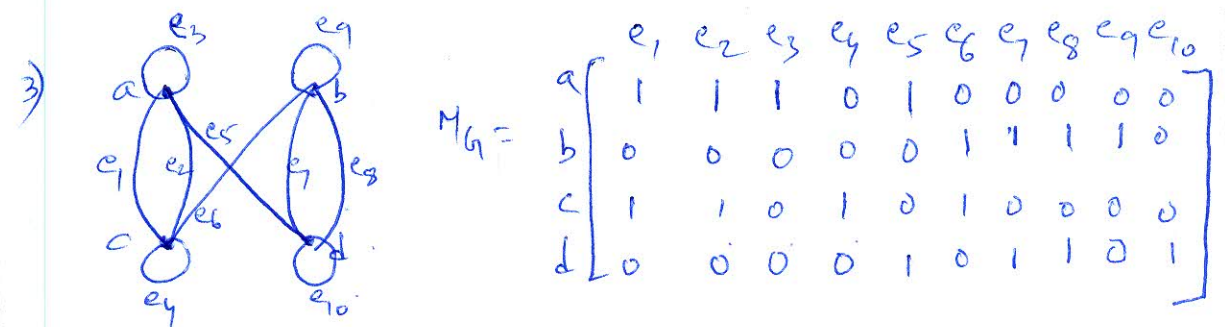 3)
e3 e9
a b
e5
e1 e2 e7 e8
e6
c d
e4 e10
e1 e2 e3 e4 e5 e6 e7 e8 e9 e10
a 1 1 1 0 1 0 0 0 0 0
MG =
b 0 0 0 0 0 1 1 1 1 0
c 1 1 0 1 0 1 0 0 0 0
d 0 0 0 0 1 0 1 1 0 1